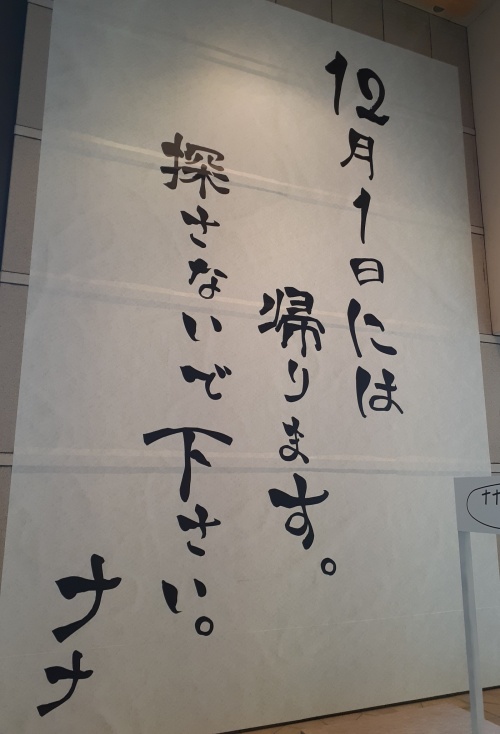 12月1日には
帰ります。
探さないで下さい。
ナナ
ナナ